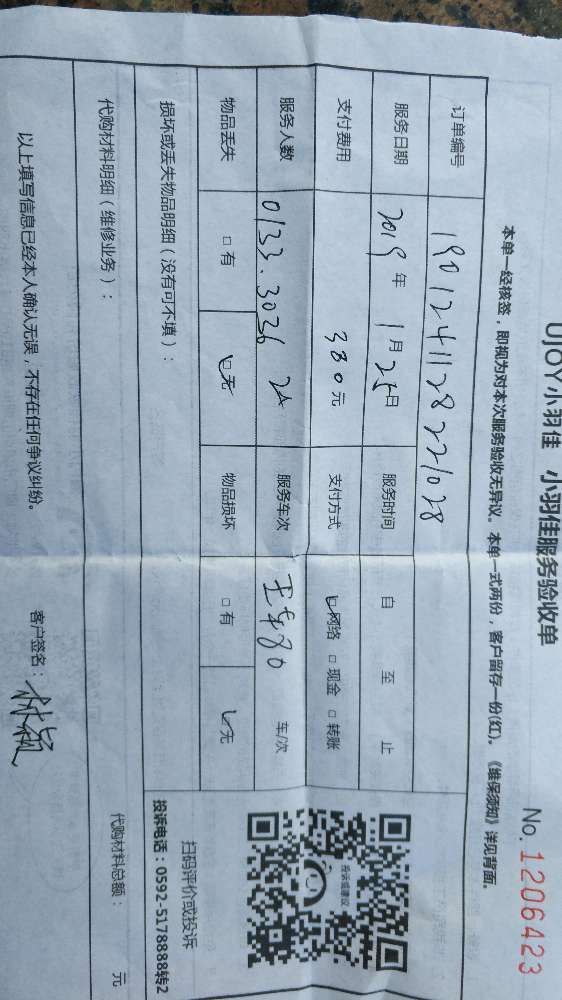 UJOY小羽佳 小羽佳服务验收单
No. 1206423
本单一经核签，即视为对本次服务验收无异议。本单一式两份，客户留存一份(红)。《维保须知》详见背面。
订单编号 1901241128221028
服务日期 2019年1月25日 服务时间 自 至 止
支付费用 380元 支付方式 ☑网络 □现金 □转账
服务人数 0133.3036 2人 服务车次 车/次
物品丢失 □有 ☑无 物品损坏 □有 ☑无
损坏或丢失物品明细（没有可不填）：
扫码评价或投诉
投诉电话：0592-5178888转2
投诉或建议
代购材料明细（维修业务）：
代购材料总额： 元
以上填写信息已经本人确认无误，不存在任何争议纠纷。
客户签名：林颖